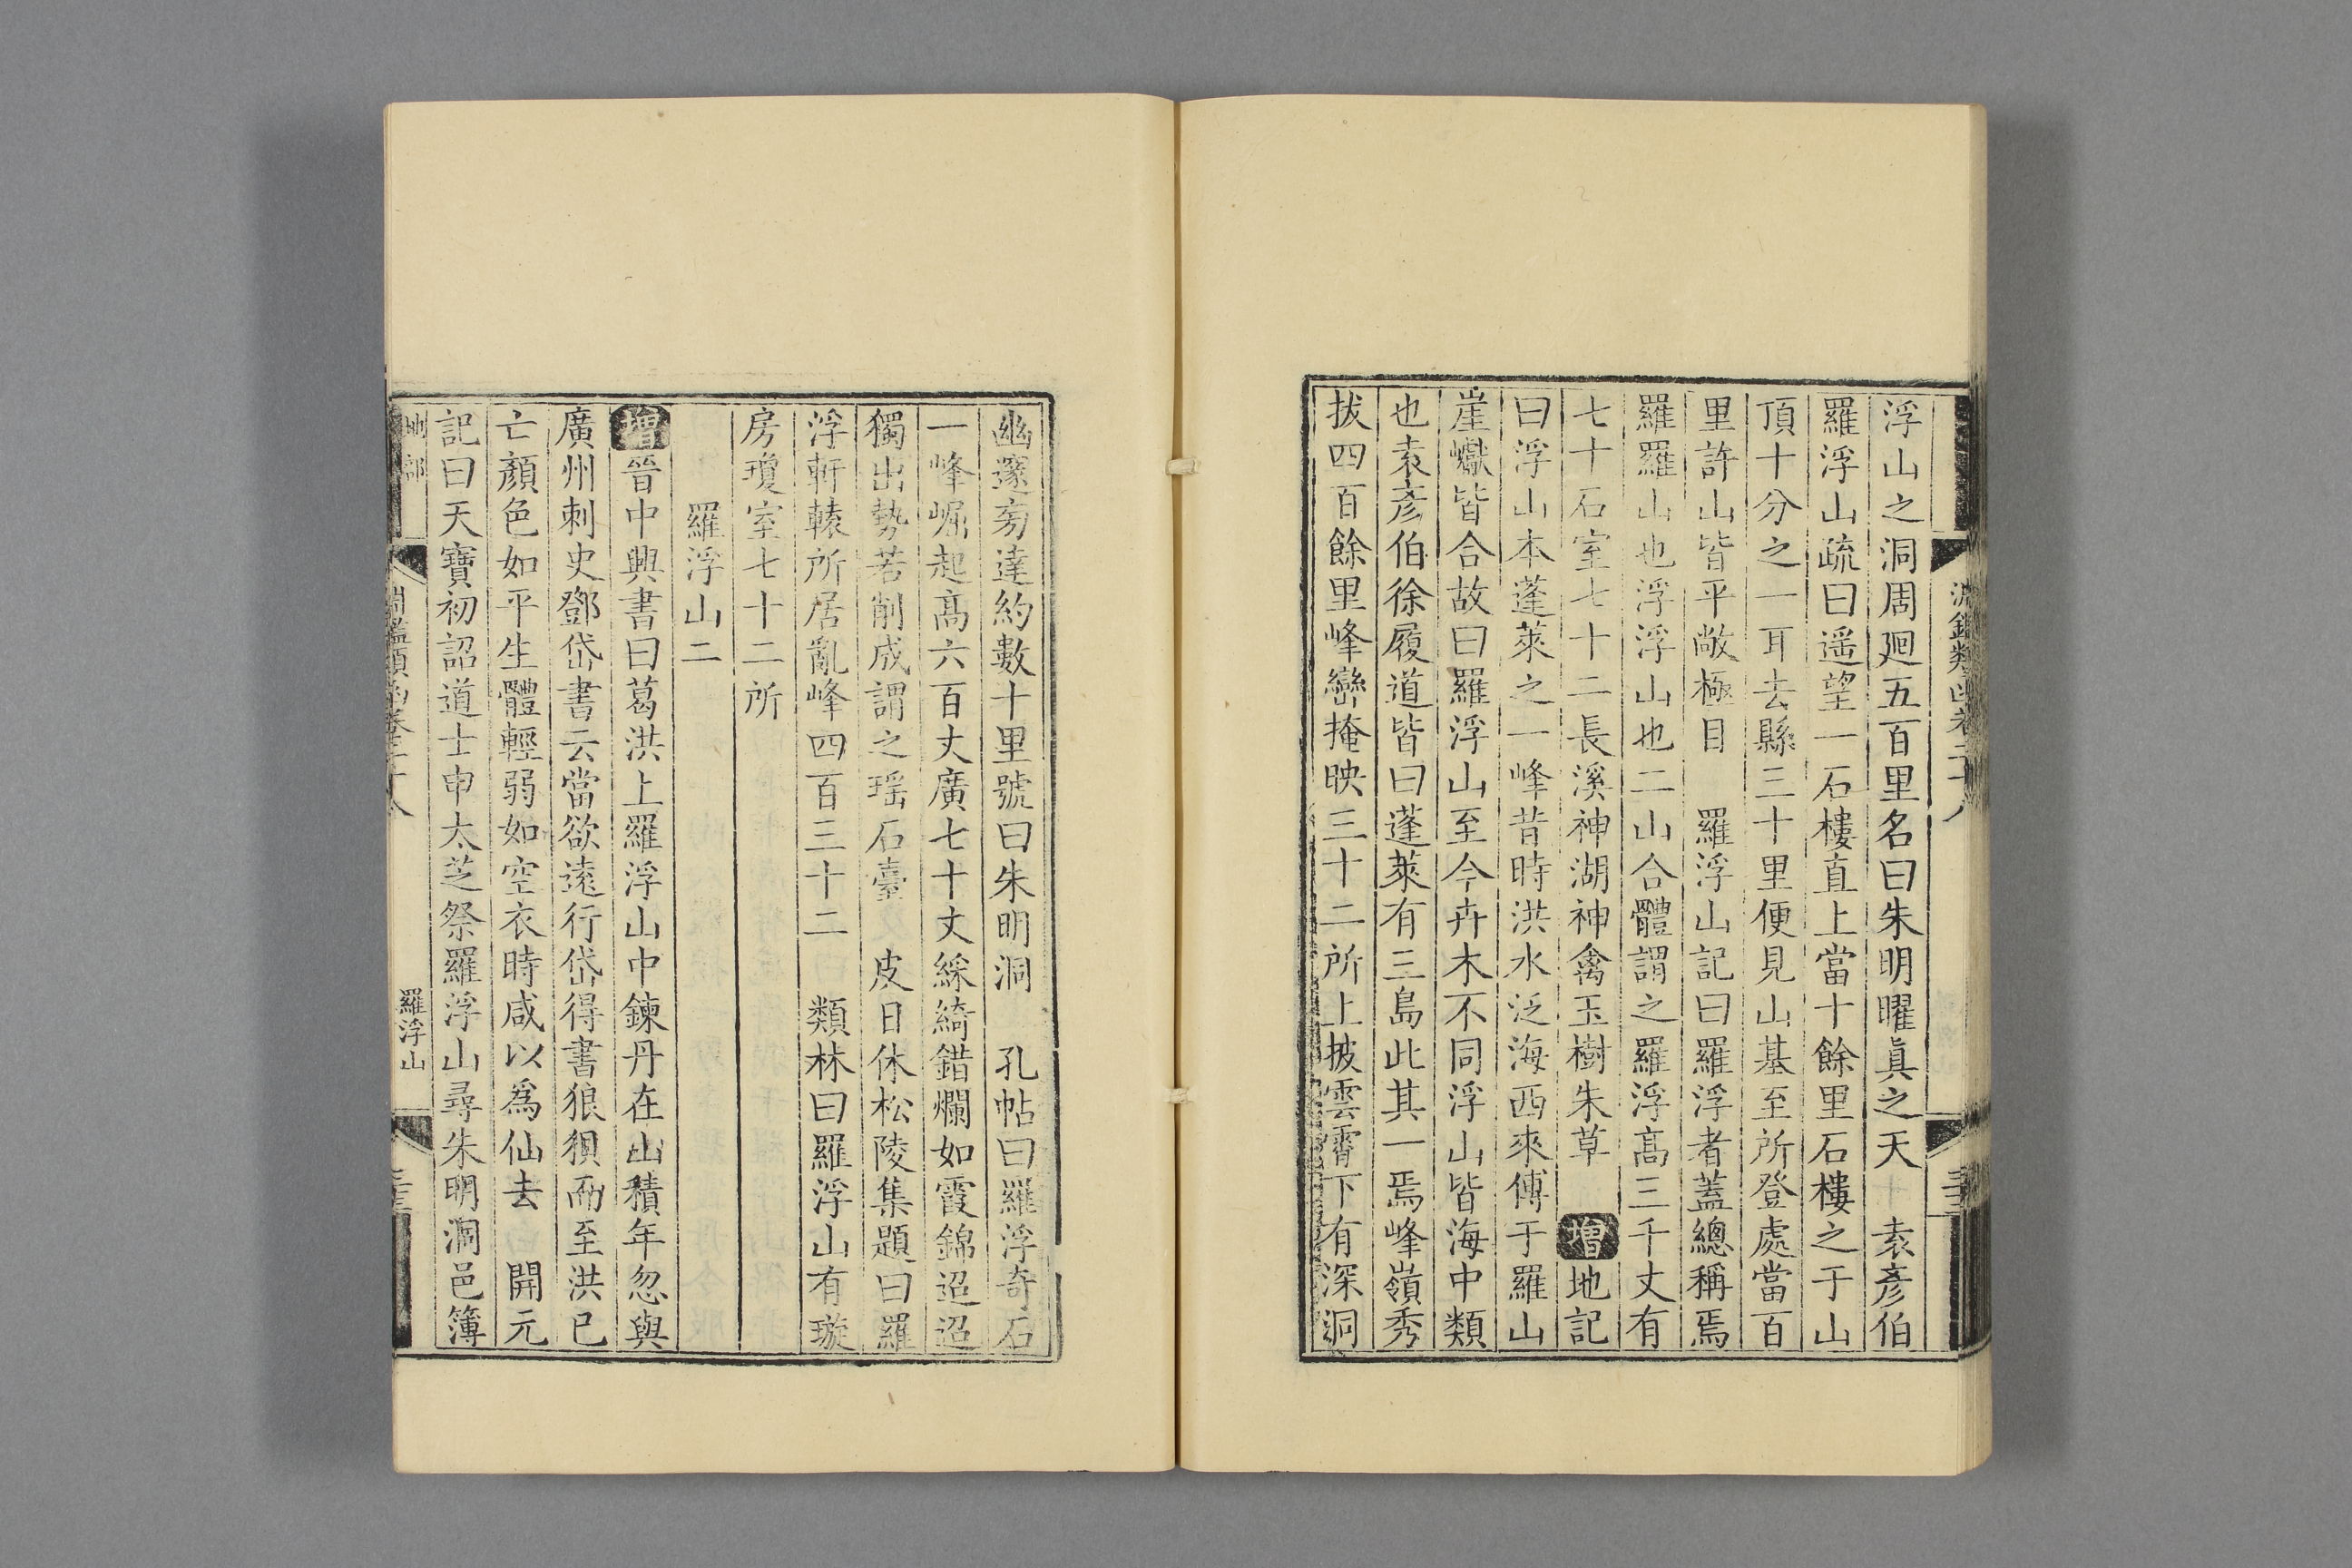 淵鑑類函卷二十八
浮山之洞周廻五百里名曰朱明曜真之天 袁彥伯
羅浮山疏曰遥望一石樓直上當十餘里石樓之于山
頂十分之一耳去縣三十里便見山基至所登處當百
里許山皆平敞極目 羅浮山記曰羅浮者蓋總稱焉
羅羅山也浮浮山也二山合體謂之羅浮髙三千丈有
七十石室七十二長溪神湖神禽玉樹朱草 增地記
曰浮山本蓬萊之一峰昔時洪水泛海西來傅于羅山
崖巘皆合故曰羅浮山至今卉木不同浮山皆海中類
也袁彥伯徐履道皆曰蓬萊有三島此其一焉峰嶺秀
拔四百餘里峰巒掩映三十二所上披雲霄下有深洞
幽邃旁達約數十里號曰朱明洞 孔帖曰羅浮奇石
一峰崛起髙六百丈廣七十丈綵綺錯爛如霞錦迢迢
獨出勢若削成謂之瑶石臺 皮日休松陵集題曰羅
浮軒轅所居亂峰四百三十二 類林曰羅浮山有璇
房瓊室七十二所
羅浮山二
增晉中興書曰葛洪上羅浮山中鍊丹在山積年忽與
廣州刺史鄧岱書云當欲遠行岱得書狼狽而至洪已
亡顏色如平生體輕弱如空衣時咸以爲仙去 開元
記曰天寶初詔道士申太芝祭羅浮山尋朱明洞邑簿
地部
淵鑑類函卷二十八
羅浮山